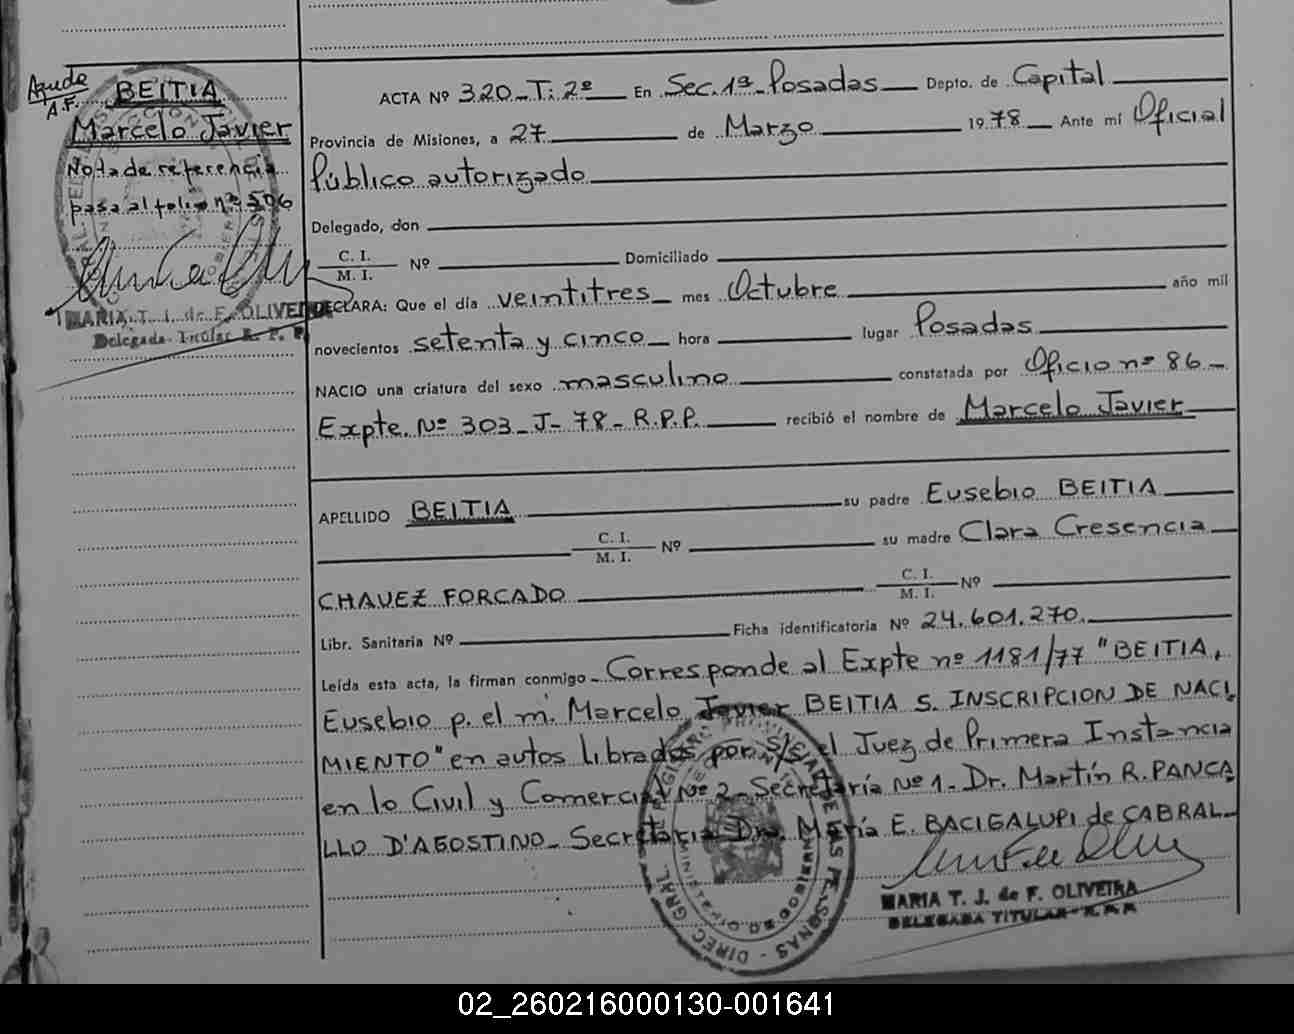 Ayuda
A.F.
BEITIA
Marcelo Javier
Nota de referencia
pasa al folio nº 506
MARIA T. J. de F. OLIVEIRA
Delegada Titular R. P. P.
ACTA Nº 320 - T: 2º En Sec. 1ª - Posadas Depto. de Capital
Provincia de Misiones, a 27 de Marzo 1978 Ante mí Oficial
Público autorizado
Delegado, don
C. I.
M. I. Nº Domiciliado
DECLARA: Que el día veintitres mes Octubre año mil
novecientos setenta y cinco hora lugar Posadas
NACIO una criatura del sexo masculino constatada por Oficio nº 86 -
Expte. Nº 303 - J - 78 - R.P.P. recibió el nombre de Marcelo Javier
APELLIDO BEITIA su padre Eusebio BEITIA
C. I.
M. I. Nº su madre Clara Cresencia
CHAVEZ FORCADO C. I.
M. I. Nº
Libr. Sanitaria Nº Ficha identificatoria Nº 24.601.270.
Leída esta acta, la firman conmigo - Corresponde al Expte nº 1181/77 "BEITIA,
Eusebio p. el m. Marcelo Javier BEITIA S. INSCRIPCION DE NACI
MIENTO" en autos librados por S/S el Juez de Primera Instancia
en lo Civil y Comercial Nº 2 - Secretaría Nº 1 - Dr. Martín R. PANCA
LLO D'AGOSTINO - Secretaria Dra. María E. BACIGALUPI de CABRAL -
DIREC. GRAL. REGISTRO PROVINCIAL DE LAS PERSONAS
MARIA T. J. de F. OLIVEIRA
DELEGADA TITULAR R.P.P.
02_260216000130-001641